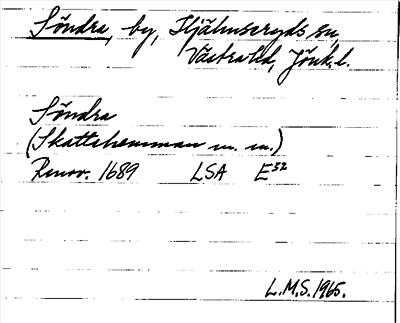 Söndra, by, Hjälmseryds sn,
Västra hd, Jönk. l.
Söndra
(Skattehemman m. m.)
Renov. 1689 LSA E52
L.M.S. 1965.